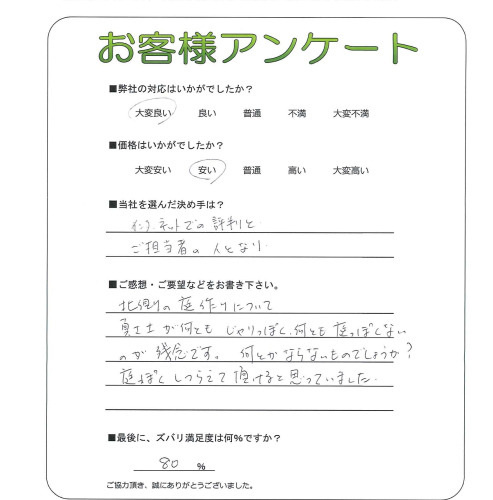 お客様アンケート
■弊社の対応はいかがでしたか？
大変良い 良い 普通 不満 大変不満
■価格はいかがでしたか？
大変安い 安い 普通 高い 大変高い
■当社を選んだ決め手は？
ネットでの評判と
ご担当者の人となり
■ご感想・ご要望などをお書き下さい。
北側の庭作りについて
が何とも じゃりっぽく、何とも庭っぽくない
のが残念です。 何とかならないものでしょうか？
庭ぽくしつらえて頂けると思っていました
■最後に、ズバリ満足度は何%ですか？
80 %
ご協力頂き、誠にありがとうございました。